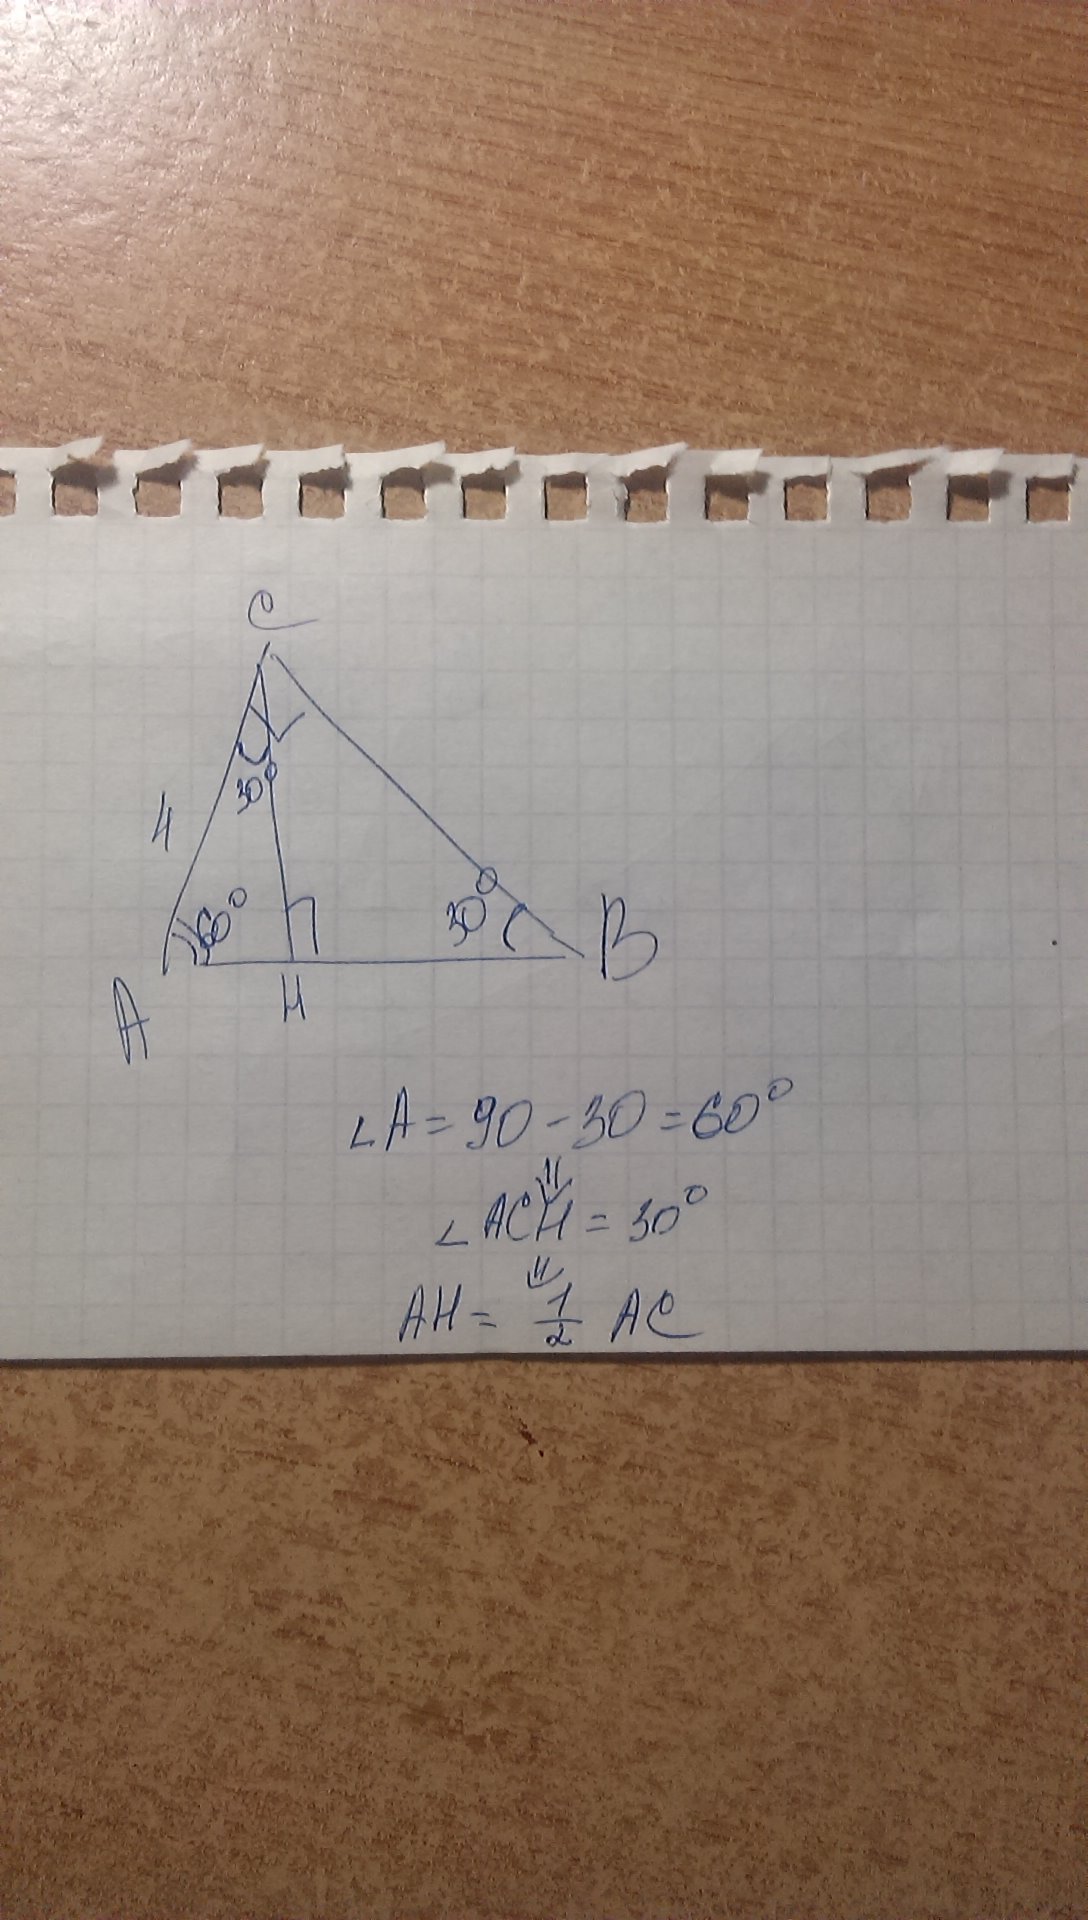 C
30°
4
60°
30°
A
H
B
∠A = 90 - 30 = 60°
⇓
∠ACH = 30°
⇓
AH = 1/2 AC